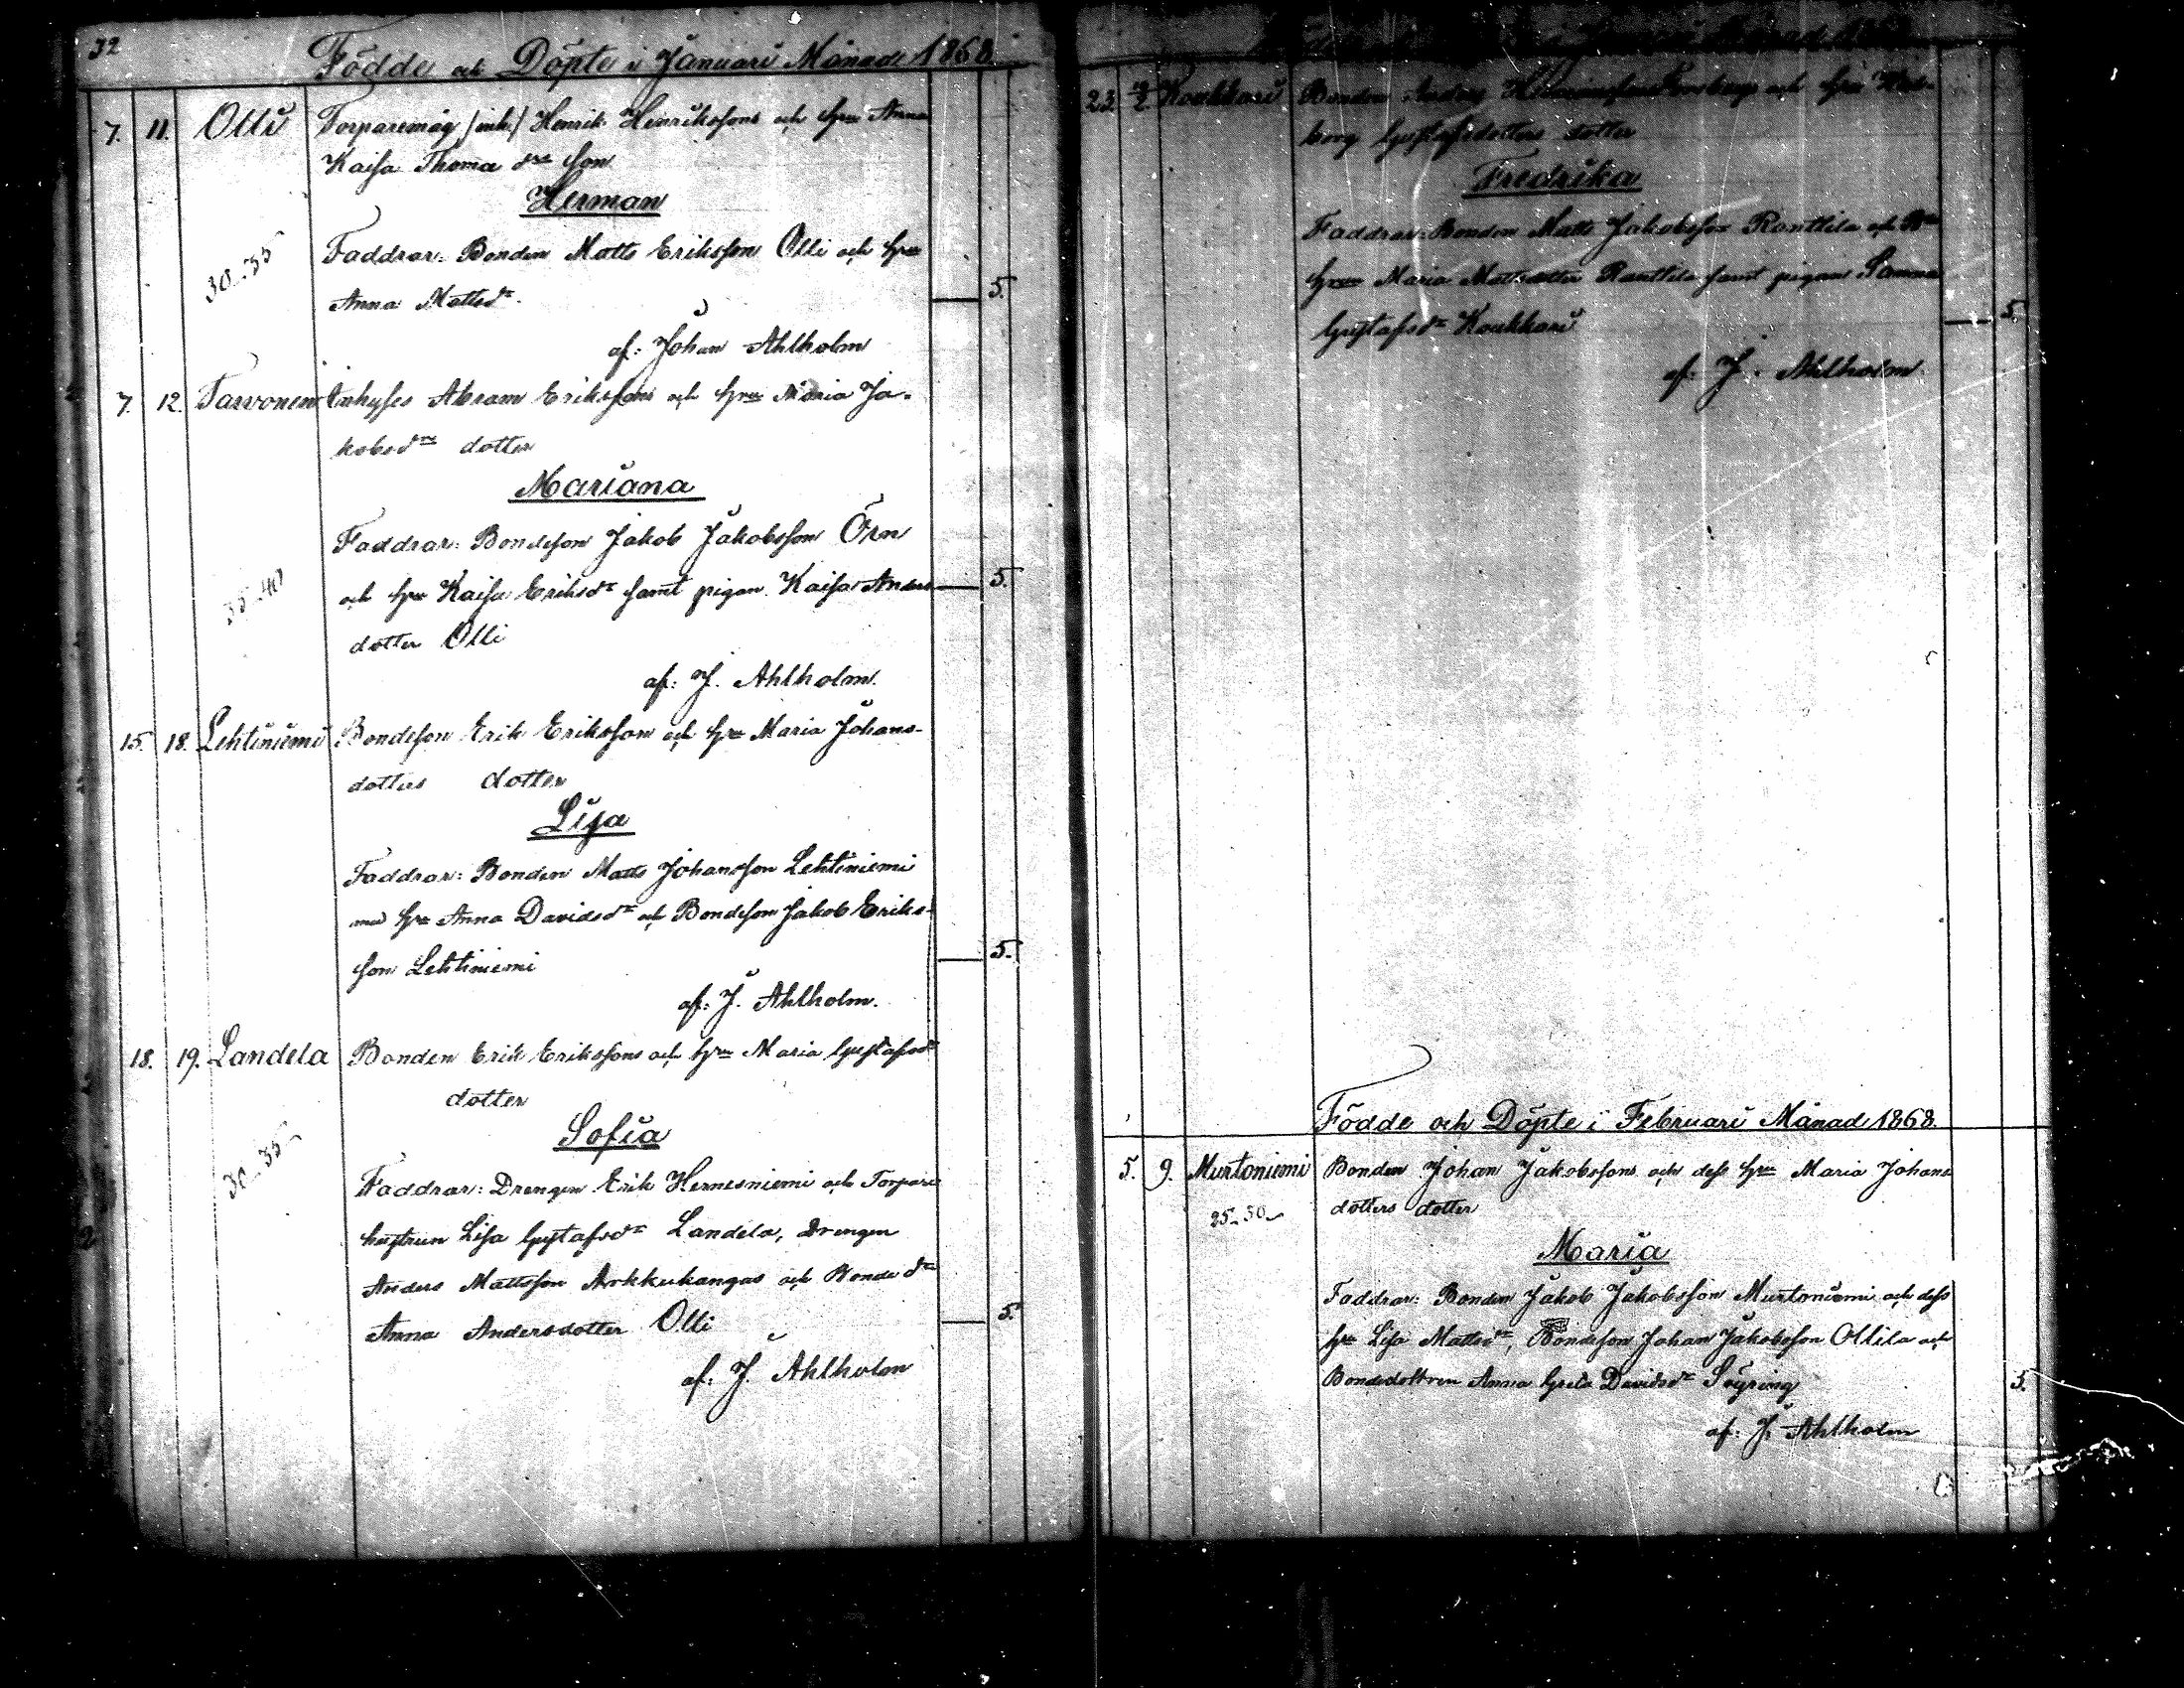 32
Födde och Döpte i Januari Månad 1868.
7. 11. Olli Torparemåg /inh/ Henrik Henrikssons och Hru Anna
Kaisa Thoma drs son
Herman
Faddrar: Bonden Matts Eriksson Olli och Hru
30-35
Anna Mattsdr. 5.
af: Johan Ahlholm
7. 12. Tarvonen Inhyses Abram Erikssons och Hru Maria Ja-
kobsdrs dotter
Mariana
Faddrar: Bondeson Jakob Jakobsson Örn
och Hru Kaisa Eriksdr samt pigan Kaisa Anders 5.
35-40
dotter Olli
af: J. Ahlholm.
15. 18. Lehtiniemi Bondeson Erik Eriksson och Hru Maria Johans-
dotters dotter
Lisa
Faddrar: Bonden Matts Johansson Lehtiniemi
med Hru Anna Davidsdr och Bondeson Jakob Eriks-
son Lehtiniemi 5.
af: J. Ahlholm.
18. 19. Landela Bonden Erik Erikssons och Hru Maria Gustafsdr
dotter
Sofia
30-35
Faddrar: Drengen Erik Hernesniemi och Torpare
hustrun Lisa Gustafsdr Landela, Drengen
Anders Mattsson Arkkukangas och Bonde dr
Anna Andersdotter Olli 5.
af: J. Ahlholm
23. Koukkari Bonden och Hru Hed-
borg Gustafsdotters dotter
Fredrika
Faddrar: Bonden Matts Jakobsson Ranttila och
Hru Maria Mattsdotter Ranttila samt pigan Sanna
Gustafsdr Koukkari 5.
af: J. Ahlholm.
Födde och Döpte i Februari Månad 1868.
5. 9. Murtoniemi Bonden Johan Jakobssons och dess Hru Maria Johans
25-30
dotters dotter
Maria
Faddrar: Bonden Jakob Jakobsson Murtoniemi och dess
Hru Lisa Mattsdr, Bondeson Johan Jakobsson Ollila och
Bondedottren Anna Greta Davidsdr Söyring 5.
af: J. Ahlholm